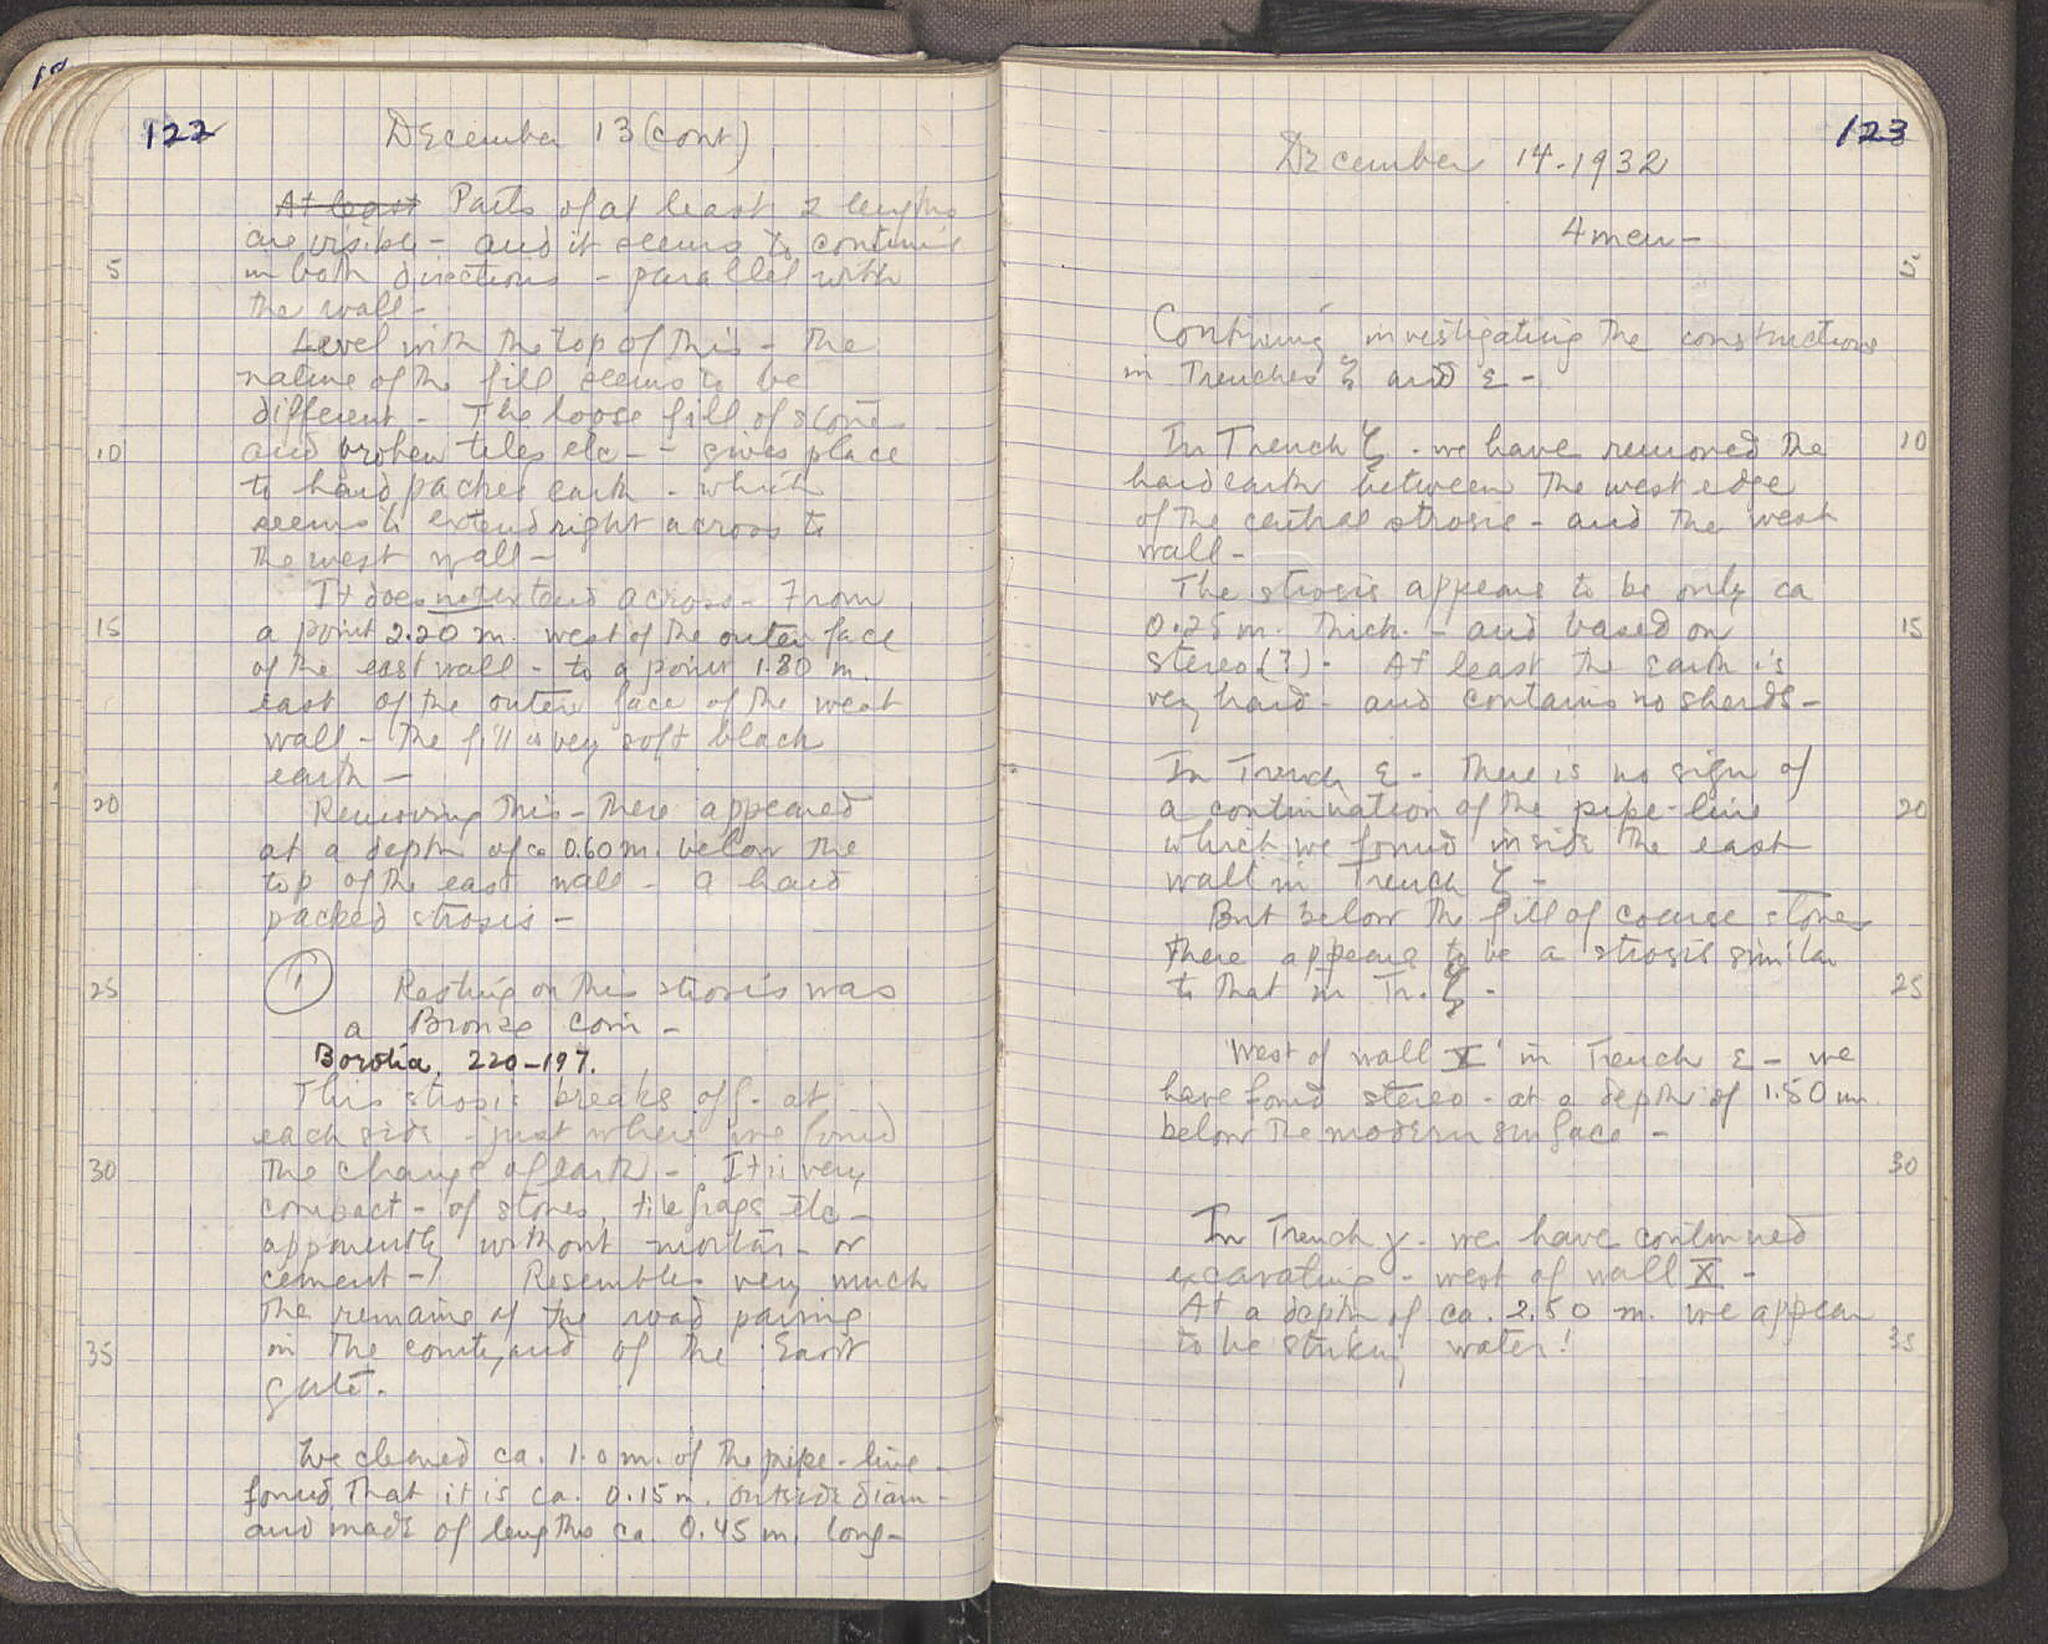 122
December 13 (cont)
At least Parts of at least 2 lengths
are visible - and it seems to continue
5
in both directions - parallel with
the wall -
Level with the top of this - the
nature of the fill seems to be
different - The loose fill of stone
10
and broken tiles etc - - gives place
to hard packed earth - which
seems to extend right across to
the west wall -
It does not extend across - From
15
a point 2.20 m. west of the outer face
of the east wall - to a point 1.80 m.
east of the outer face of the west
wall - the fill is very soft black
earth -
20
Removing this - there appeared
at a depth of ca 0.60 m. below the
top of the east wall - a hard
packed strosis -
25
1 Resting on this strosis was
a Bronze coin -
Boeotia. 220-197.
This strosis breaks off - at
each side - just where we found
30
the change of earth - It is very
compact - of stones, tile frags etc -
apparently without mortar - or
cement - Resembles very much
the remains of the road paving
35
in the courtyard of the East
gate.
We cleaned ca. 1.0 m. of the pipe-line -
found that it is ca. 0.15 m. outside diam -
and made of lengths ca. 0.45 m. long -
123
December 14-1932
4 men -
5
Continuing investigating the constructions
in Trenches ζ and ε -
10
In Trench ζ - we have removed the
hard earth between the west edge
of the central strosis - and the west
wall -
The strosis appears to be only ca
15
0.25 m. thick. - and based on
stereo (?) - At least the earth is
very hard - and contains no sherds -
In Trench ε - there is no sign of
20
a continuation of the pipe-line
which we found inside the east
wall in Trench ζ -
But below the fill of coarse stones
there appears to be a strosis similar
25
to that in Tr. ζ -
West of wall X in Trench ε - we
have found stereo - at a depth of 1.50 m.
below the modern surface -
30
In Trench γ - we have continued
excavating - west of wall X -
At a depth of ca. 2.50 m. we appear
35
to be striking water!